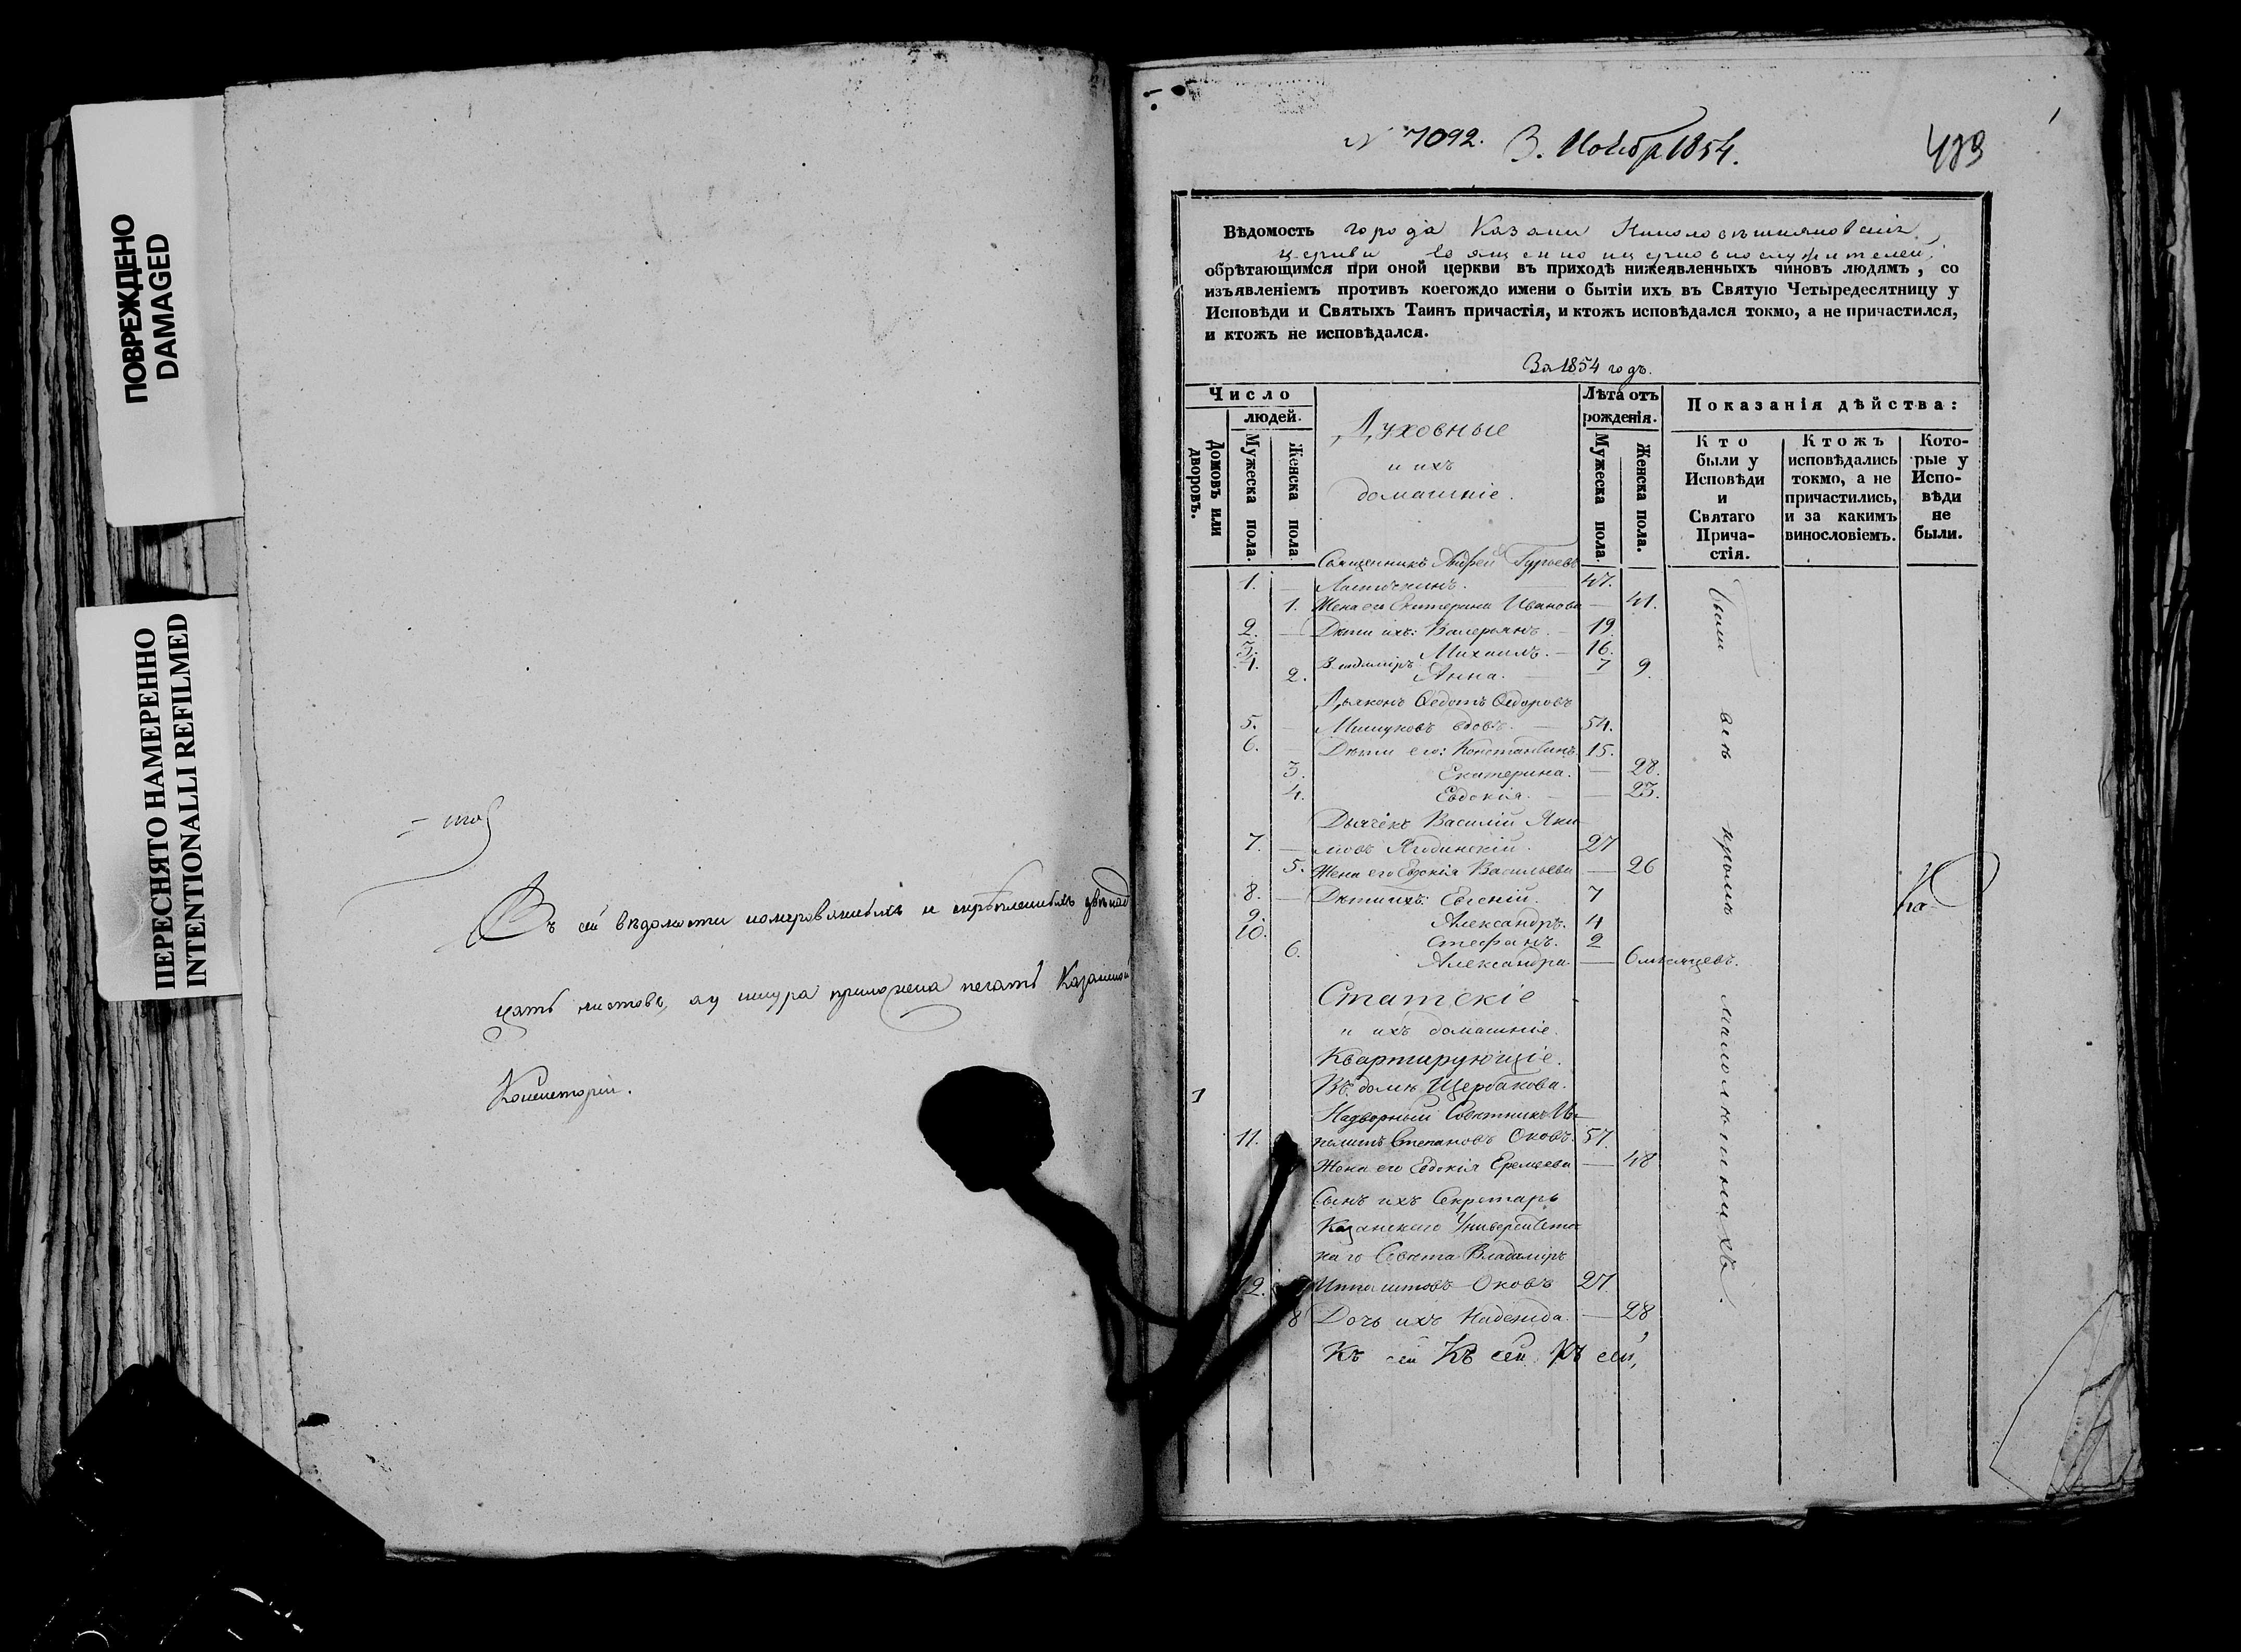 ПОВРЕЖДЕНО
DAMAGED
ПЕРЕСНЯТО НАМЕРЕННО
INTENTIONALLI REFILMED
Въ сей вѣдомости номерованныхъ и скрѣпленныхъ двѣнад
цать листовъ, а у шнура приложена печать Казанской
Консисторіи.
№ 7092. 3. Ноября 1854.
1
Вѣдомость города Казани
церкви
обрѣтающимся при оной церкви въ приходѣ нижеявленныхъ чиновъ людямъ, со
изъявленіемъ противъ коегождо имени о бытіи ихъ въ Святую Четыредесятницу у
Исповѣди и Святыхъ Таинъ причастія, и ктожъ исповѣдался токмо, а не причастился,
и ктожъ не исповѣдался.
За 1854 годъ.
Число
людей.
Домовъ или дворовъ.
Мужеска пола.
Женска пола.
Духовные
и ихъ
домашніе.
Лѣта отъ рожденія.
Мужеска пола.
Женска пола.
Показанія дѣйства:
Кто были у Исповѣди и Святаго Причастія.
Ктожъ исповѣдались токмо, а не причастились, и за какимъ винословіемъ.
Которые у Исповѣди не были.
Священникъ Андрей Гурьевъ
1. — Ласточкинъ. 47.
1. Жена его Екатерина Иванова — 41.
2. — Дѣти ихъ: Валерьянъ. — 19.
3. Михаилъ. — 16.
4. Владиміръ 7
2. Анна. — 9.
Дьяконъ Ѳедотъ Ѳедоровъ
5. — вдовъ. — 54.
6. — Дѣти его: Константинъ 15.
3. Екатерина. — 28.
4. Евдокія. — 23.
Дьячекъ Василій Яки
7. — мовъ Ягодинскій. 27
5. Жена его Евдокія Васильева — 26
8. — Дѣти ихъ: Евгеній. 7
9. Александръ. 4
10. Стефанъ. 2
6. Александра — 6 мѣсяцевъ.
Статскіе
и ихъ домашніе.
Квартирующіе.
1 Въ домѣ Щербакова.
Надворный Совѣтникъ Ип
11. политъ Степановъ Оковъ. 57.
Жена его Евдокія Еремеева — 48
Сынъ ихъ Секретарь
Казанскаго Университет
скаго Совѣта Владиміръ
12. Ипполитовъ Оковъ 27.
8 Дочь ихъ Надежда. — 28
Къ сей Къ сей Къ сей,
Были всѣ кромѣ малолѣтнихъ.